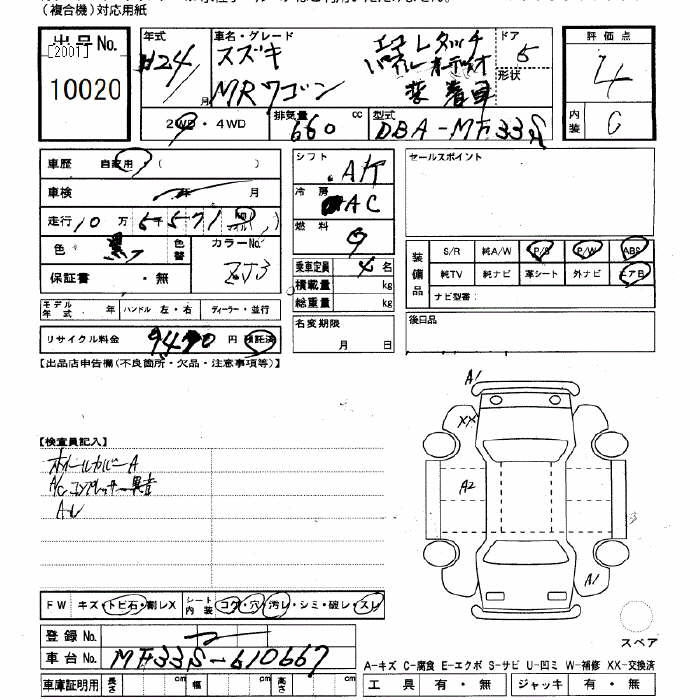 (複合機)対応用紙
出品No.
[2001]
10020
年式
H24/
月
車名・グレード
スズキ
MRワゴン
エコ レタッチ
装着車
ドア
5
形状
評価点
4
内装
C
2WD・4WD
排気量
660
cc
型式
DBA-MF33S
車歴 自家用 ( )
車検 年 月
走行 10万 5千571 km
色 黒 色替
カラーNo. ZJ3
保証書 ・ 無
モデル年式 年 ハンドル 左・右 ディーラー・並行
リサイクル料金 9490 円 預託済
シフト A/T
冷房 AC
燃料 G
乗車定員 4 名
積載量 kg
総重量 kg
名変期限
月 日
セールスポイント
装備品
S/R 純A/W P/S P/W ABS
純TV 純ナビ 革シート 外ナビ エアB
ナビ型番:
後日品
【出品店申告欄(不良箇所・欠品・注意事項等)】
【検査員記入】
ホイールカバーA
A/Cコンプレッサー異音
A1
XX
A2
A1
スペア
FW キズ・トビ石・割レX シート内装 コゲ・穴・汚レ・シミ・破レ・スレ
登録No.
車台No. MF33S-610667
車庫証明用 長さ cm 幅 cm 高さ cm
A-キズ C-腐食 E-エクボ S-サビ U-凹ミ W-補修 XX-交換済
工具 有・無 ジャッキ 有・無